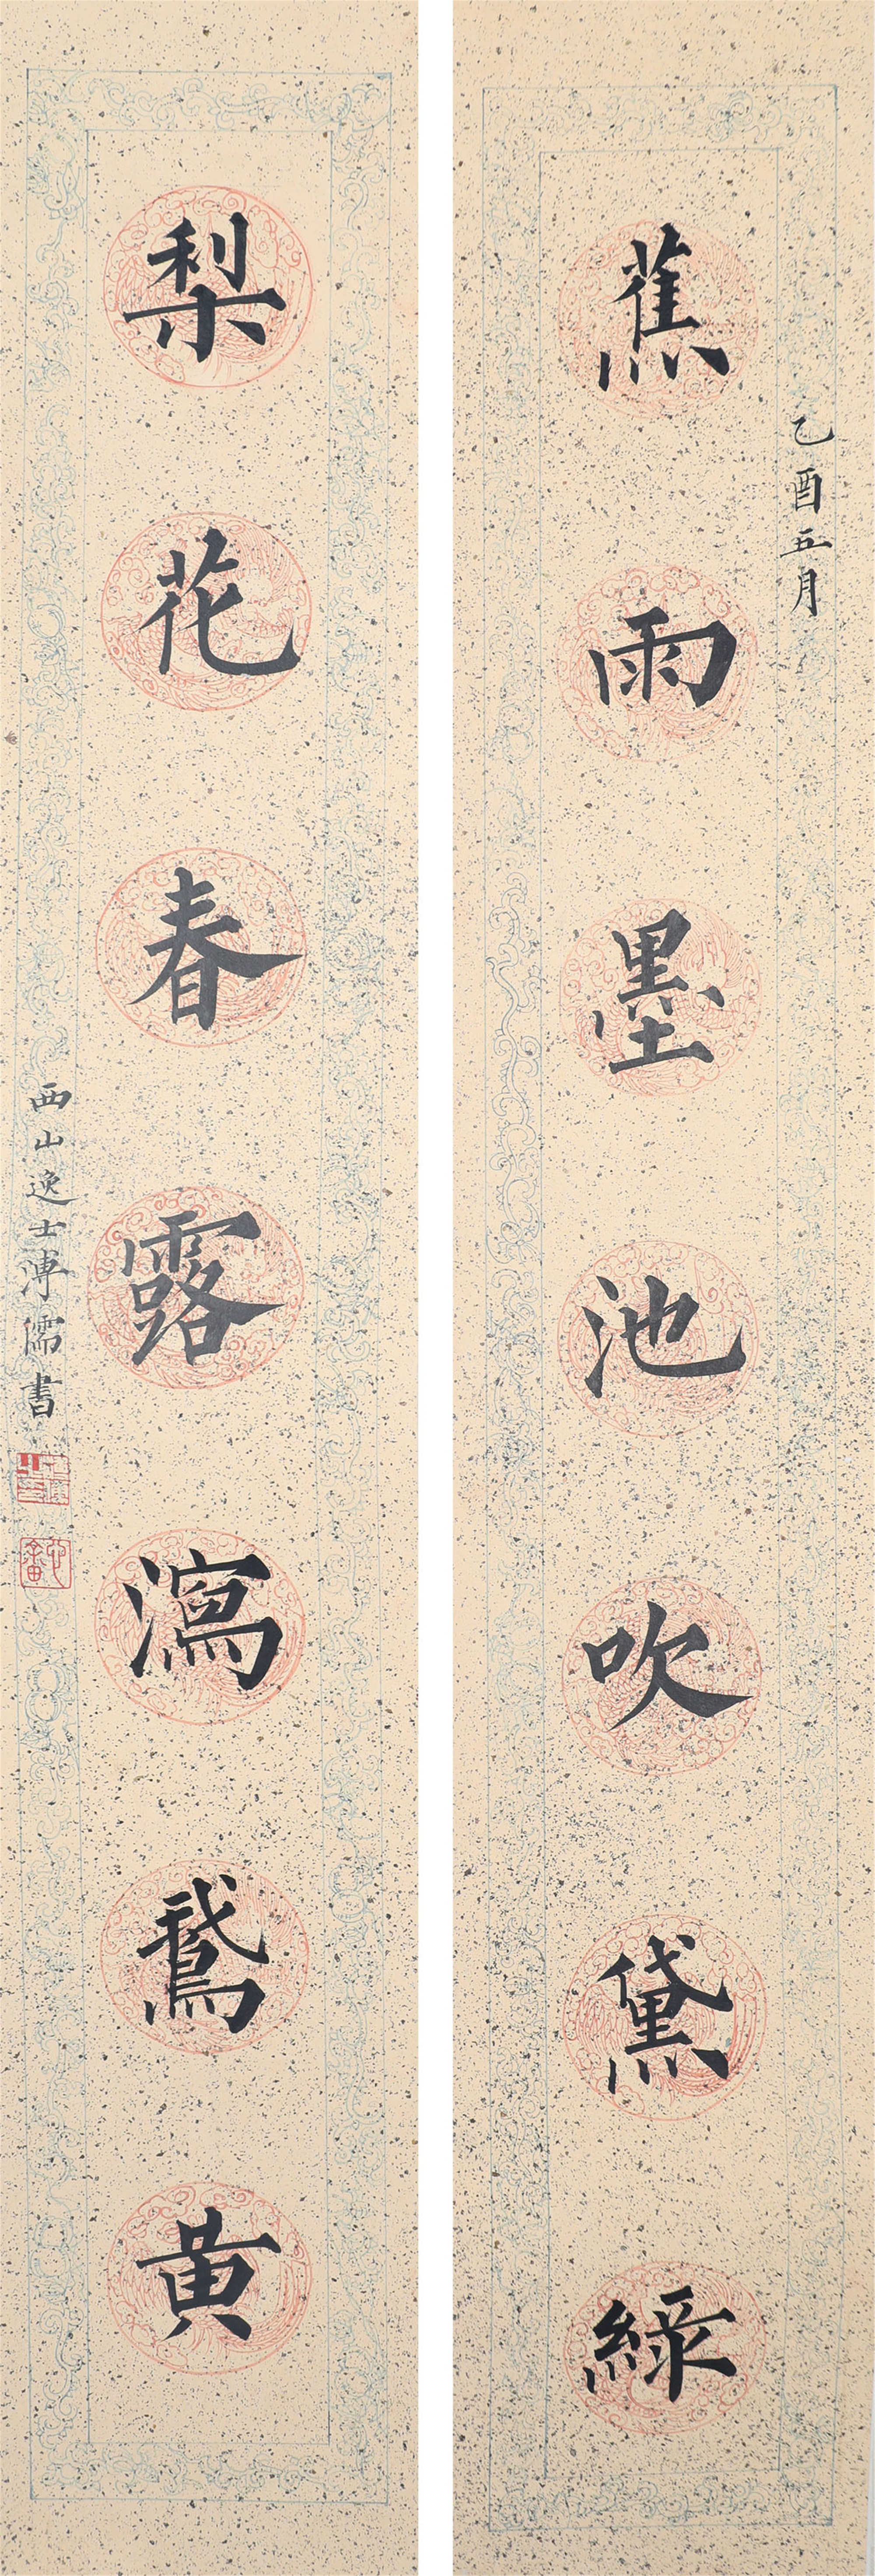 乙酉五月
蕉雨墨池吹黛綠
梨花春露瀉鵞黃
西山逸士溥儒書